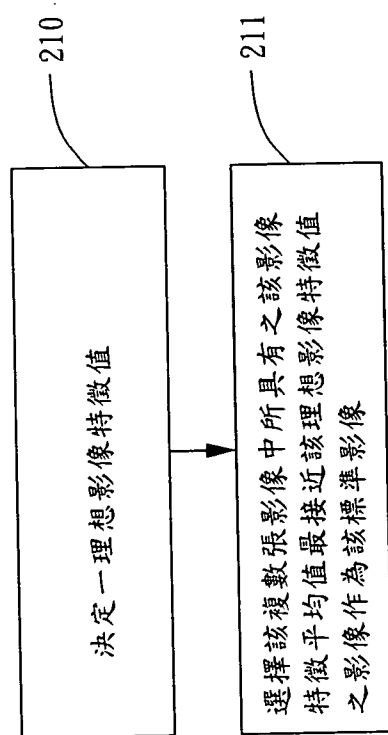 決定一理想影像特徵值
210
選擇該複數張影像中所具有之該影像
特徵平均值最接近該理想影像特徵值
之影像作為該標準影像
211